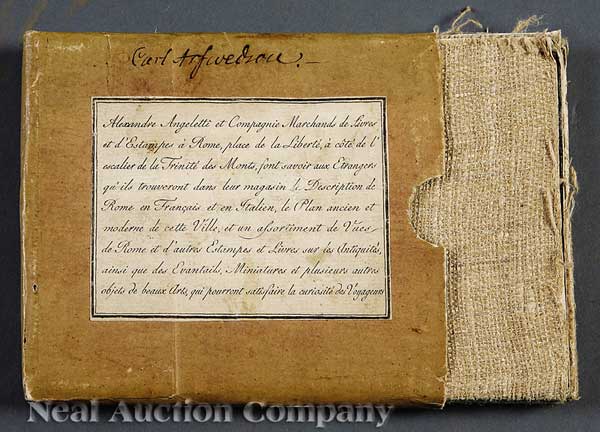 Carl Arfwedson.
Alexandre Angelette et Compagnie Marchands de Livres
et d'Estampes à Rome, place de la Liberté, à côté de l'
escalier de la Trinité des Monts, font savoir aux Etrangers
qu'ils trouveront dans leur magasin la Description de
Rome en Français et en Italien, le Plan ancien et
moderne de cette Ville, et un assortiment de Vues
de Rome et d'autres Estampes et Livres sur les Antiquités,
ainsi que des Evantails, Miniatures et plusieurs autres
objets de beaux Arts, qui pourront satisfaire la curiosité des Voyageurs
Neal Auction Company